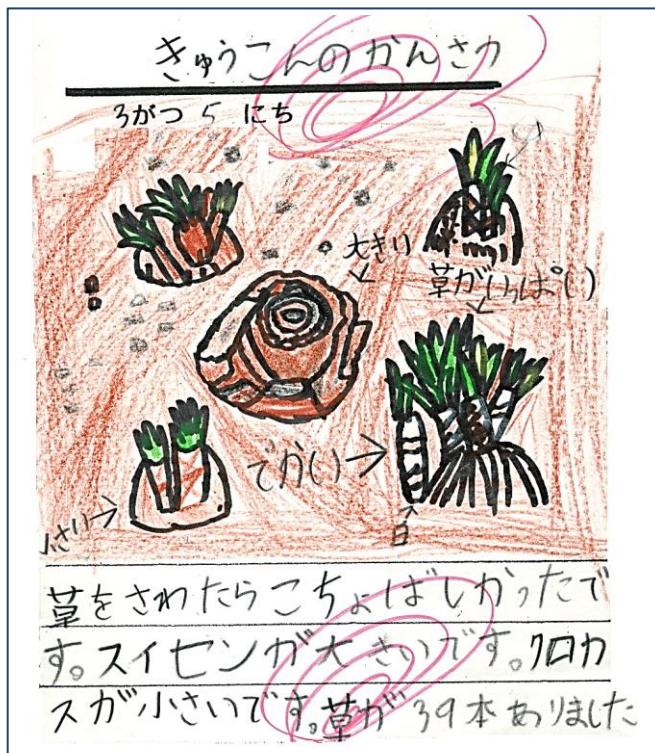 きゅうこんのかんさつ
3がつ 5 にち
大きい
草がいっぱい
でかい
小さい
白
草をさわたらこちょばしかったで
す。スイセンが大きいです。クロカ
スが小さいです。草が39本ありました